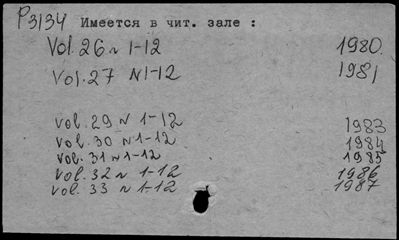 P3134 Имеется в чит. зале :
Vol. 26 N 1-12 1980
Vol. 27 N 1-12 1981
vol. 29 N 1-12 1983
vol. 30 N 1-12 1984
vol. 31 N 1-12 1985
vol. 32 N 1-12 1986
vol. 33 N 1-12 1987